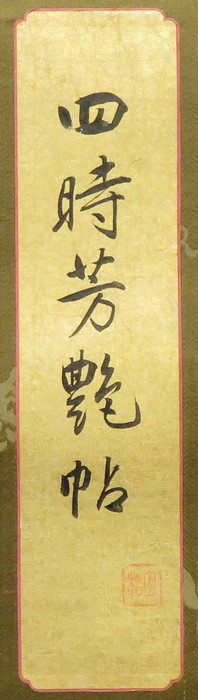 四時芳艶帖